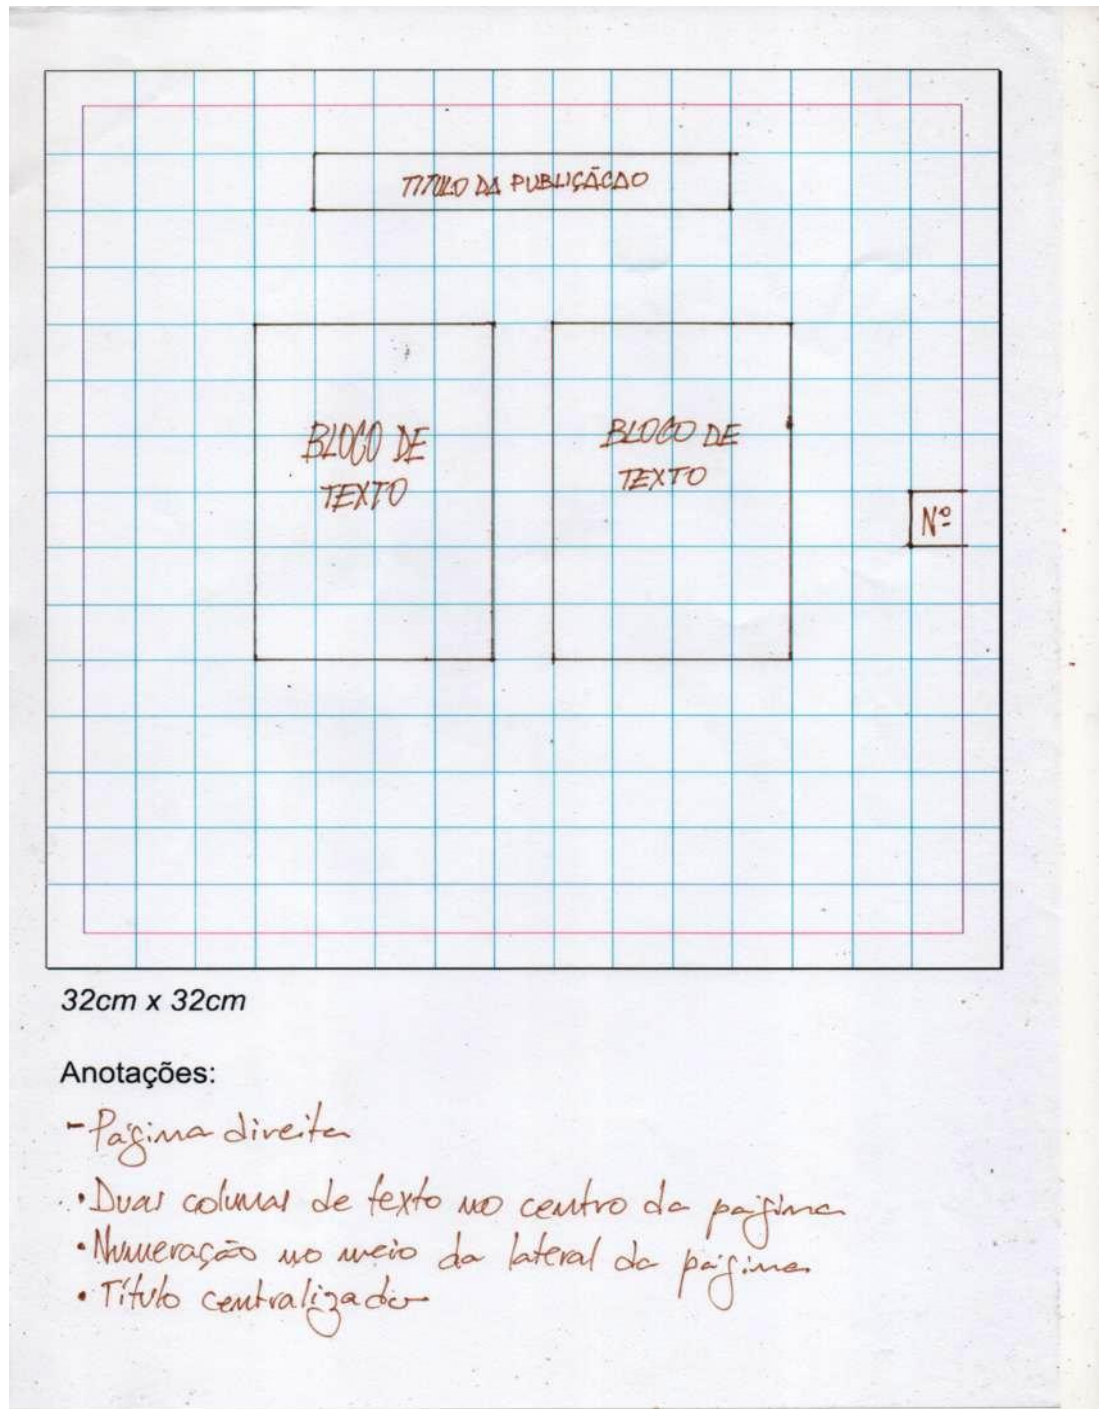 TÍTULO DA PUBLIÇÃCAO
BLOCO DE
TEXTO
BLOCO DE
TEXTO
Nº
32cm x 32cm
Anotações:
- Página direita
• Duas colunas de texto no centro da página
• Numeração no meio da lateral da página
• Título centralizado